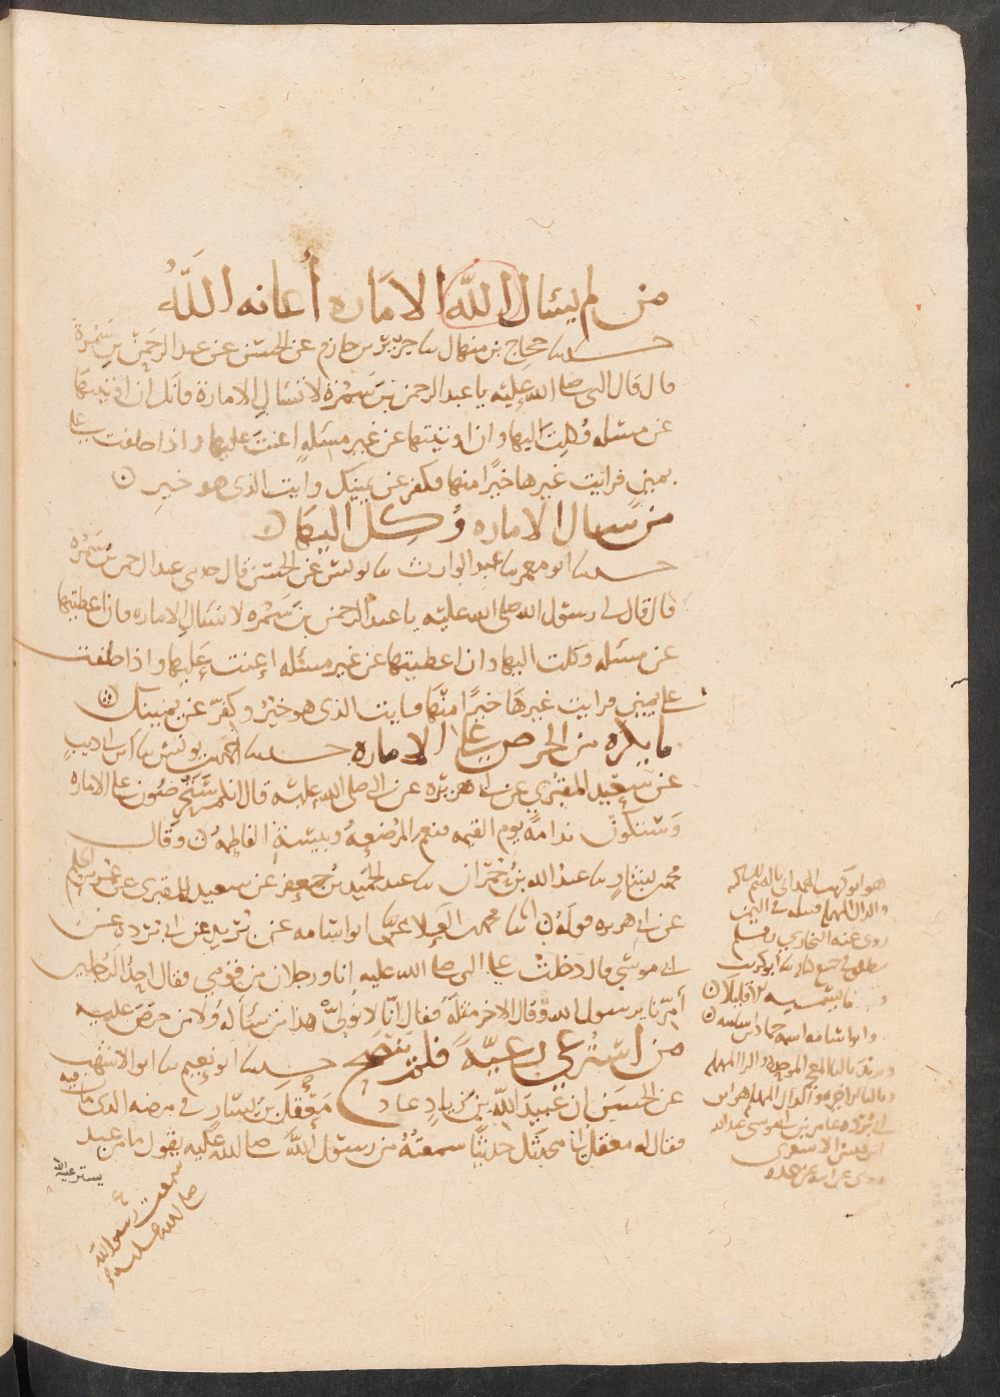 من لم يسال الله الاماره أعانه اللَّهُ
حدثنا حجاج بن منهال نا جرير بن حازم عن الحسن عن عبد الرحمن بن سَمُرة
قال قال النبى صلى الله عليه يا عبد الرحمن بن سَمُرة لا تسال الامارة فانك ان اوتيتها
عن مسئله وُكلت اليها وان اوتيتها عن غير مسئلةٍ اعنت عليها واذا حلفت على
يمينٍ فرايت غيرها خيرًا منها فكفر عن يمينك وايت الذى هو خير
من سال الاماره وُكِل اليهَا
حدثنا ابو معمر نا عبد الوارث نا يونس عن الحسن قال حدثنى عبد الرحمن بن سَمُرة
قال قال لى رسول الله صلى الله عليه يا عبد الرحمن بن سَمُره لا تسال الاماره فان اعطيتها
عن مسئله وكلت اليها وان اعطيتها عن غير مسئله اعنت عليها واذا حلفت
على يمينٍ فرايت غيرهَا خيرًا منها فايت الذى هو خيرٌ وكفّر عن يمينك
ما يكره من الحرص على الاماره حدثنا احمد بن يونس نا ابن ابى ذيب
عن سعيد المقبُري عن ابى هريره عن النبى صلى الله عليه قال انكم ستَحْرِصُون على الاماره
وَستكونُ ندامةً يوم القيمه فنعم المُرْضِعهُ وبيستِ الفاطمه وقال
محمد بن بشار نا عبد الله بن حُمْرَان نا عبد الحميد بن جعفر عن سعيد المقبرى عن عُمَر بن الحكم
عن ابى هريره قولَهُ نا محمد بن العلاء نا ابو اسامه عن بُرَيدٍ عن ابى بُردة عن
ابى موسى قال دخلت على النبى صلى الله عليه انا ورجلان من قومي فقال احدُ الرجلين
أمّرنا يرسول الله وقال الاخر مثلَهُ فقال انّا لا نُولّي هذا من سَأَلَهُ ولا من حرصَ عليه
من اسْتُرعي رعيّةً فلم ينصح حدثنا ابو نعيم نا ابو الاشهب
عن الحسَن ان عُبيدَ اللّهِ بن زيادٍ عاد مَعْقِلَ بن يسَارٍ في مرضه الذى مات فيه
فقال له معقل انى محدّثك حديثًا سمعتُهُ من رسول اللَّه صلى الله عليه يقول ما من عبد
يسترعيه الله
سمعت رسول الله
صلى الله عليه
هو ابو كريب الهمدانى
والدال المهمله قبيله فى اليمن
روى عنه البخاري
وابو اسامه اسمه حماد بن اسامه